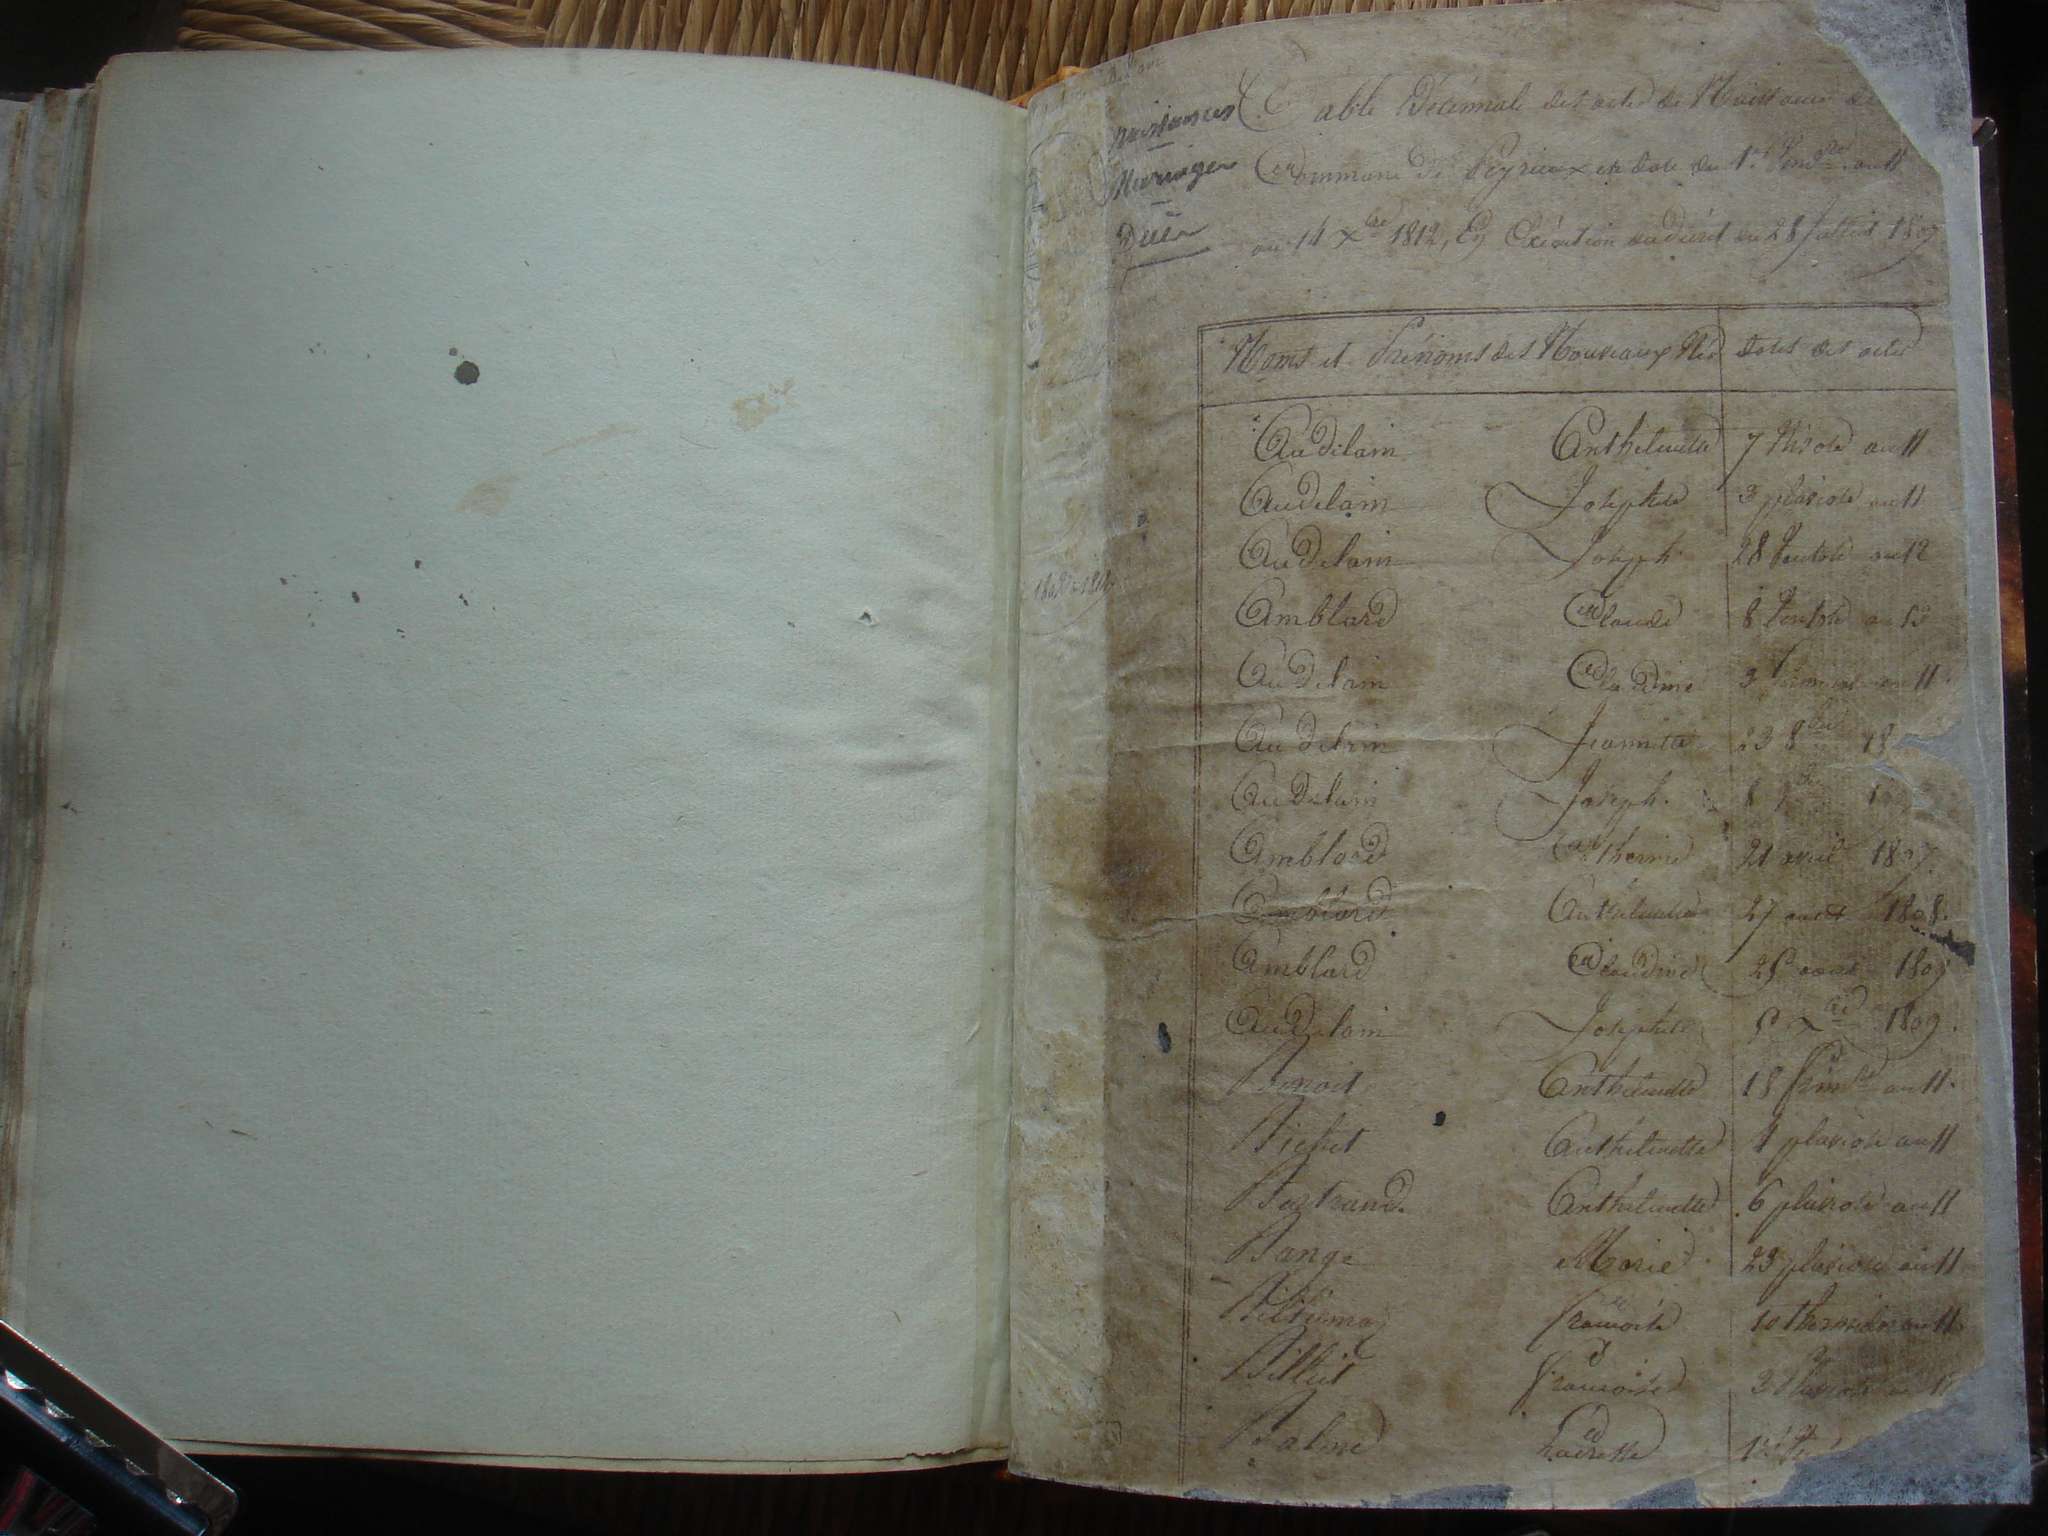 Naissances
Mariages
Décès
Table Décennale des actes de Naissance de
Commune de Peyrieux en date du 1er Vend.re an 11
au 14 Xbre 1812, En Exécution du décret du 28 Juillet 1807
Noms et Prénoms des Nouveaux Nés dates des actes
Audelain Anthelmette 7 Nivose an 11
Audelain Josephte 3 pluviose an 11
Audelain Joseph 28 Ventose an 12
Amblard Claude 8 Ventose an 12
Audelain Claudine 3 an 11
Audelain Jeannette 23 8bre 18
Audelain Joseph. 8
Amblard Catherine 21 avril 1807
Amblard Anthelmette 27 aout 1808.
Amblard Claudine 25 aout 1809
Audelain Josephte 5 Xbre 1809.
Benoit Anthelmette 18 frimre an 11.
Bichet Anthelmette 4 pluviose an 11
Bertrand. Anthelmette 6 pluviose an 11
Bange Marie 23 pluviose an 11
françoise 10 thermidor an 11
Billiet françoise 3
Balme 1er